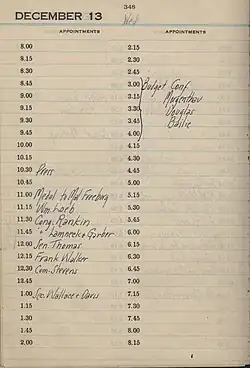 348
DECEMBER 13 Wed
APPOINTMENTS APPOINTMENTS
8.00
8.15
8.30
8.45
9.00
9.15
9.30
9.45
10.00
10.15
10.30 Press
10.45
11.00 Medal to Mal Freeburg
11.15 Wm. Loeb
11.30 Cong. Rankin
11.45 " Lamneck & Garber
12.00 Sen. Thomas
12.15 Frank Walker
12.30 Com. Stevens
12.45
1.00 Sec. Wallace - Davis
1.15
1.30
1.45
2.00
2.15
2.30
2.45
3.00 Budget Conf
3.15 Morgenthau
3.30 Douglas
3.45 Bailie
4.00
4.15
4.30
4.45
5.00
5.15
5.30
5.45
6.00
6.15
6.30
6.45
7.00
7.15
7.30
7.45
8.00
8.15